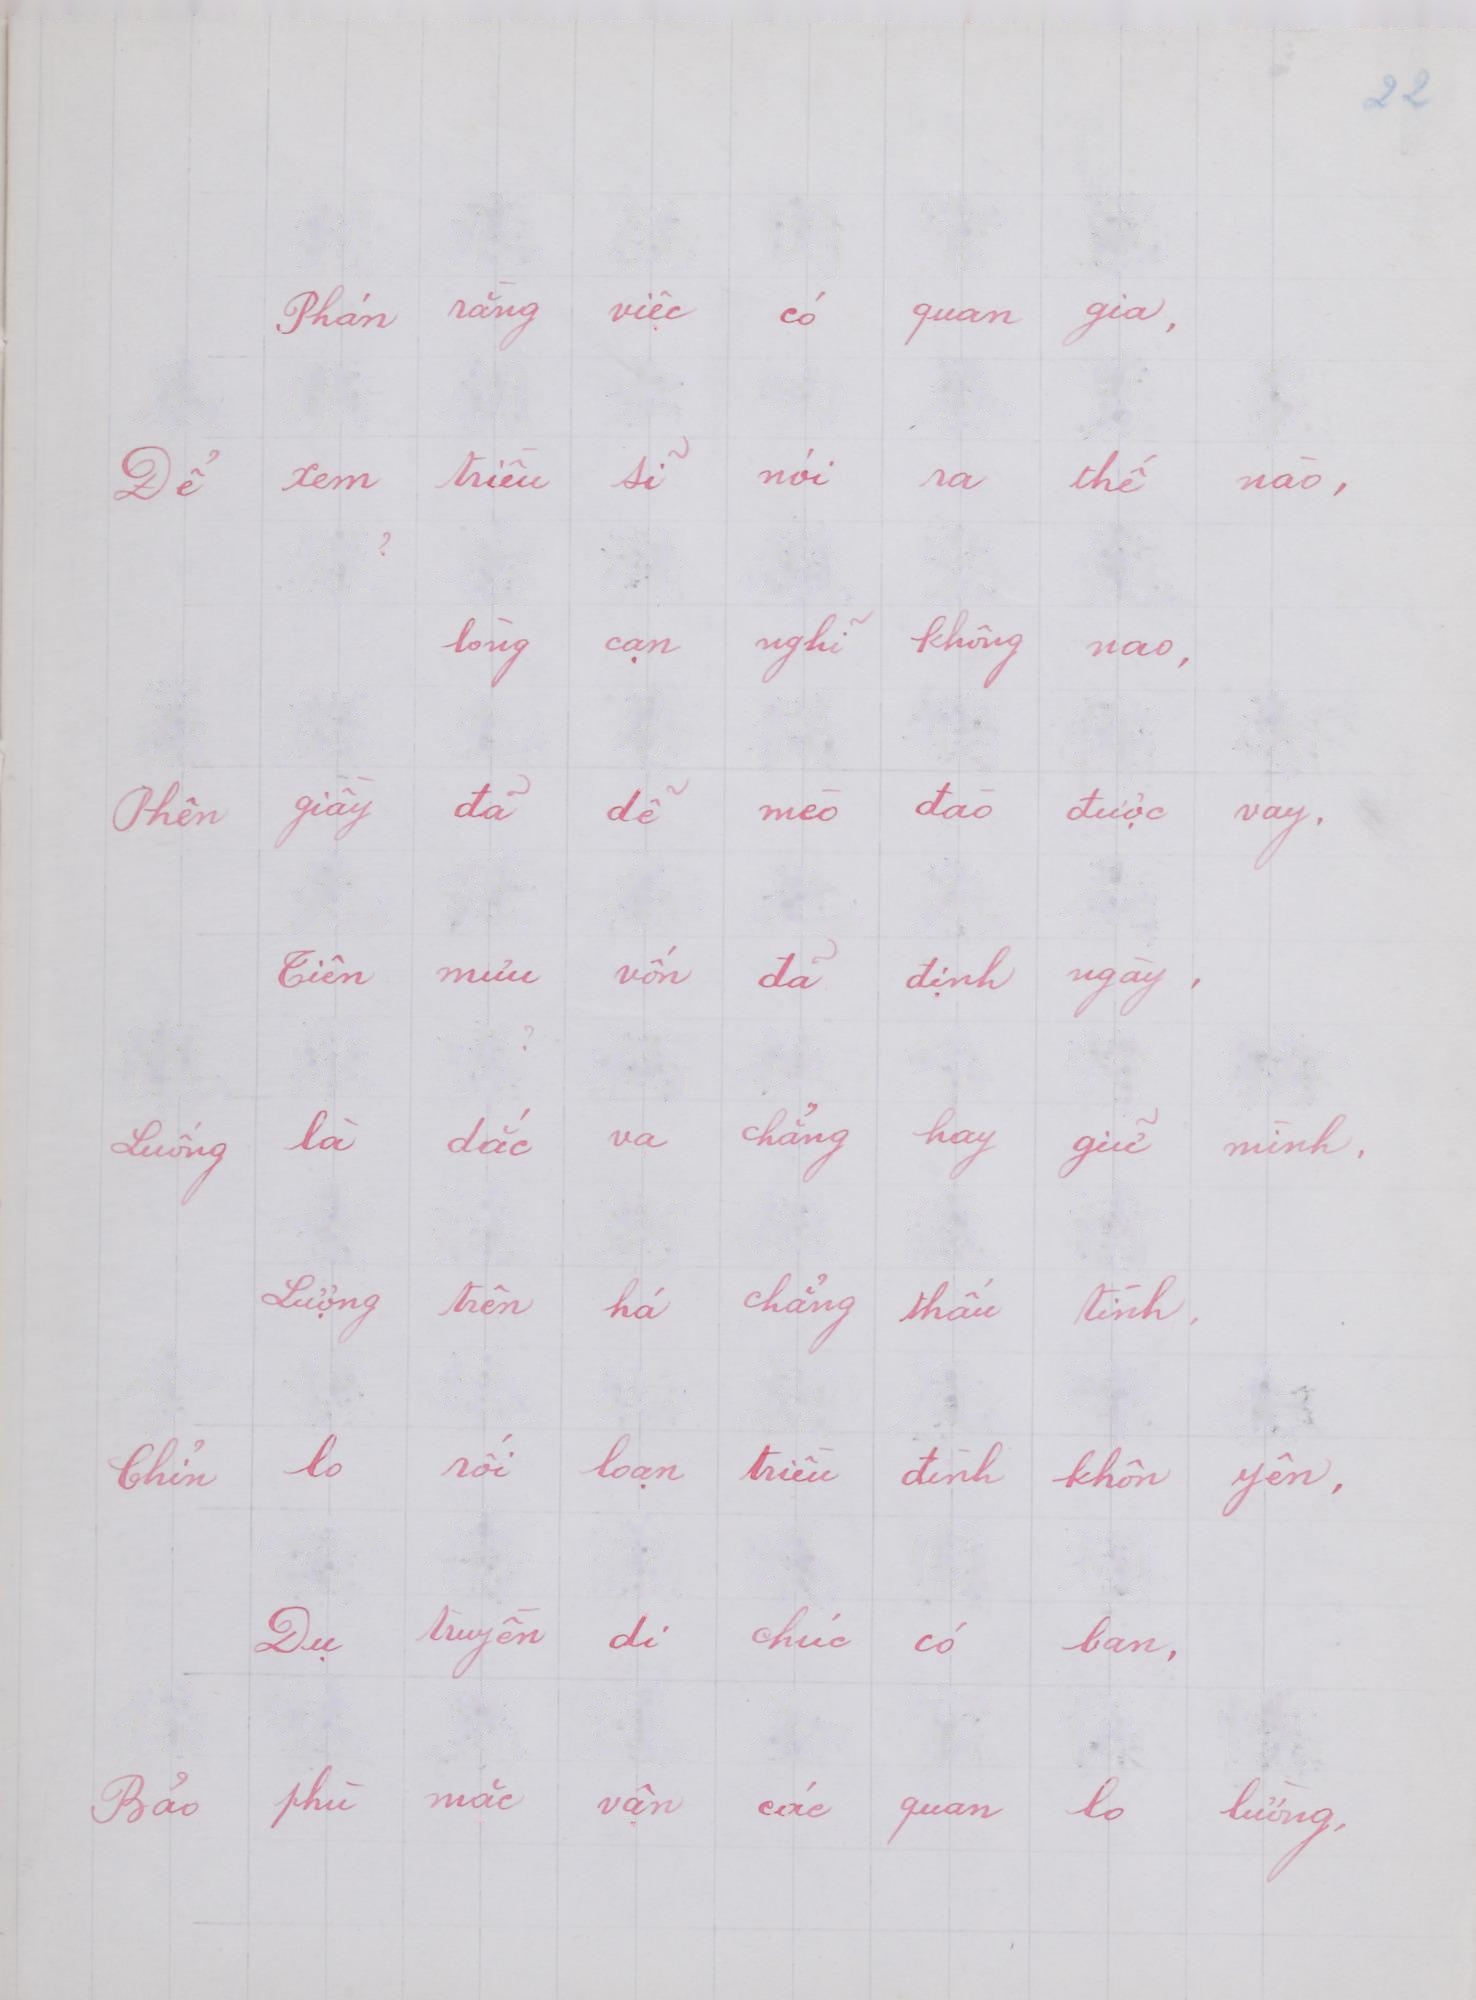 22
Phán rằng việc có quan gia,
Để xem triều sĩ nói ra thế nào,
?
lòng cạn nghĩ không nao,
Phên giầy đã dễ mèo đào được vay.
Tiên mưu vốn đã định ngày,
?
Luống là dắc va chẳng hay giữ mình.
Lượng trên há chẳng thấu tình.
Chỉn lo rối loạn triều đình khôn yên,
Dụ truyền di chúc có ban,
Bảo phù mặc vận các quan lo lường,